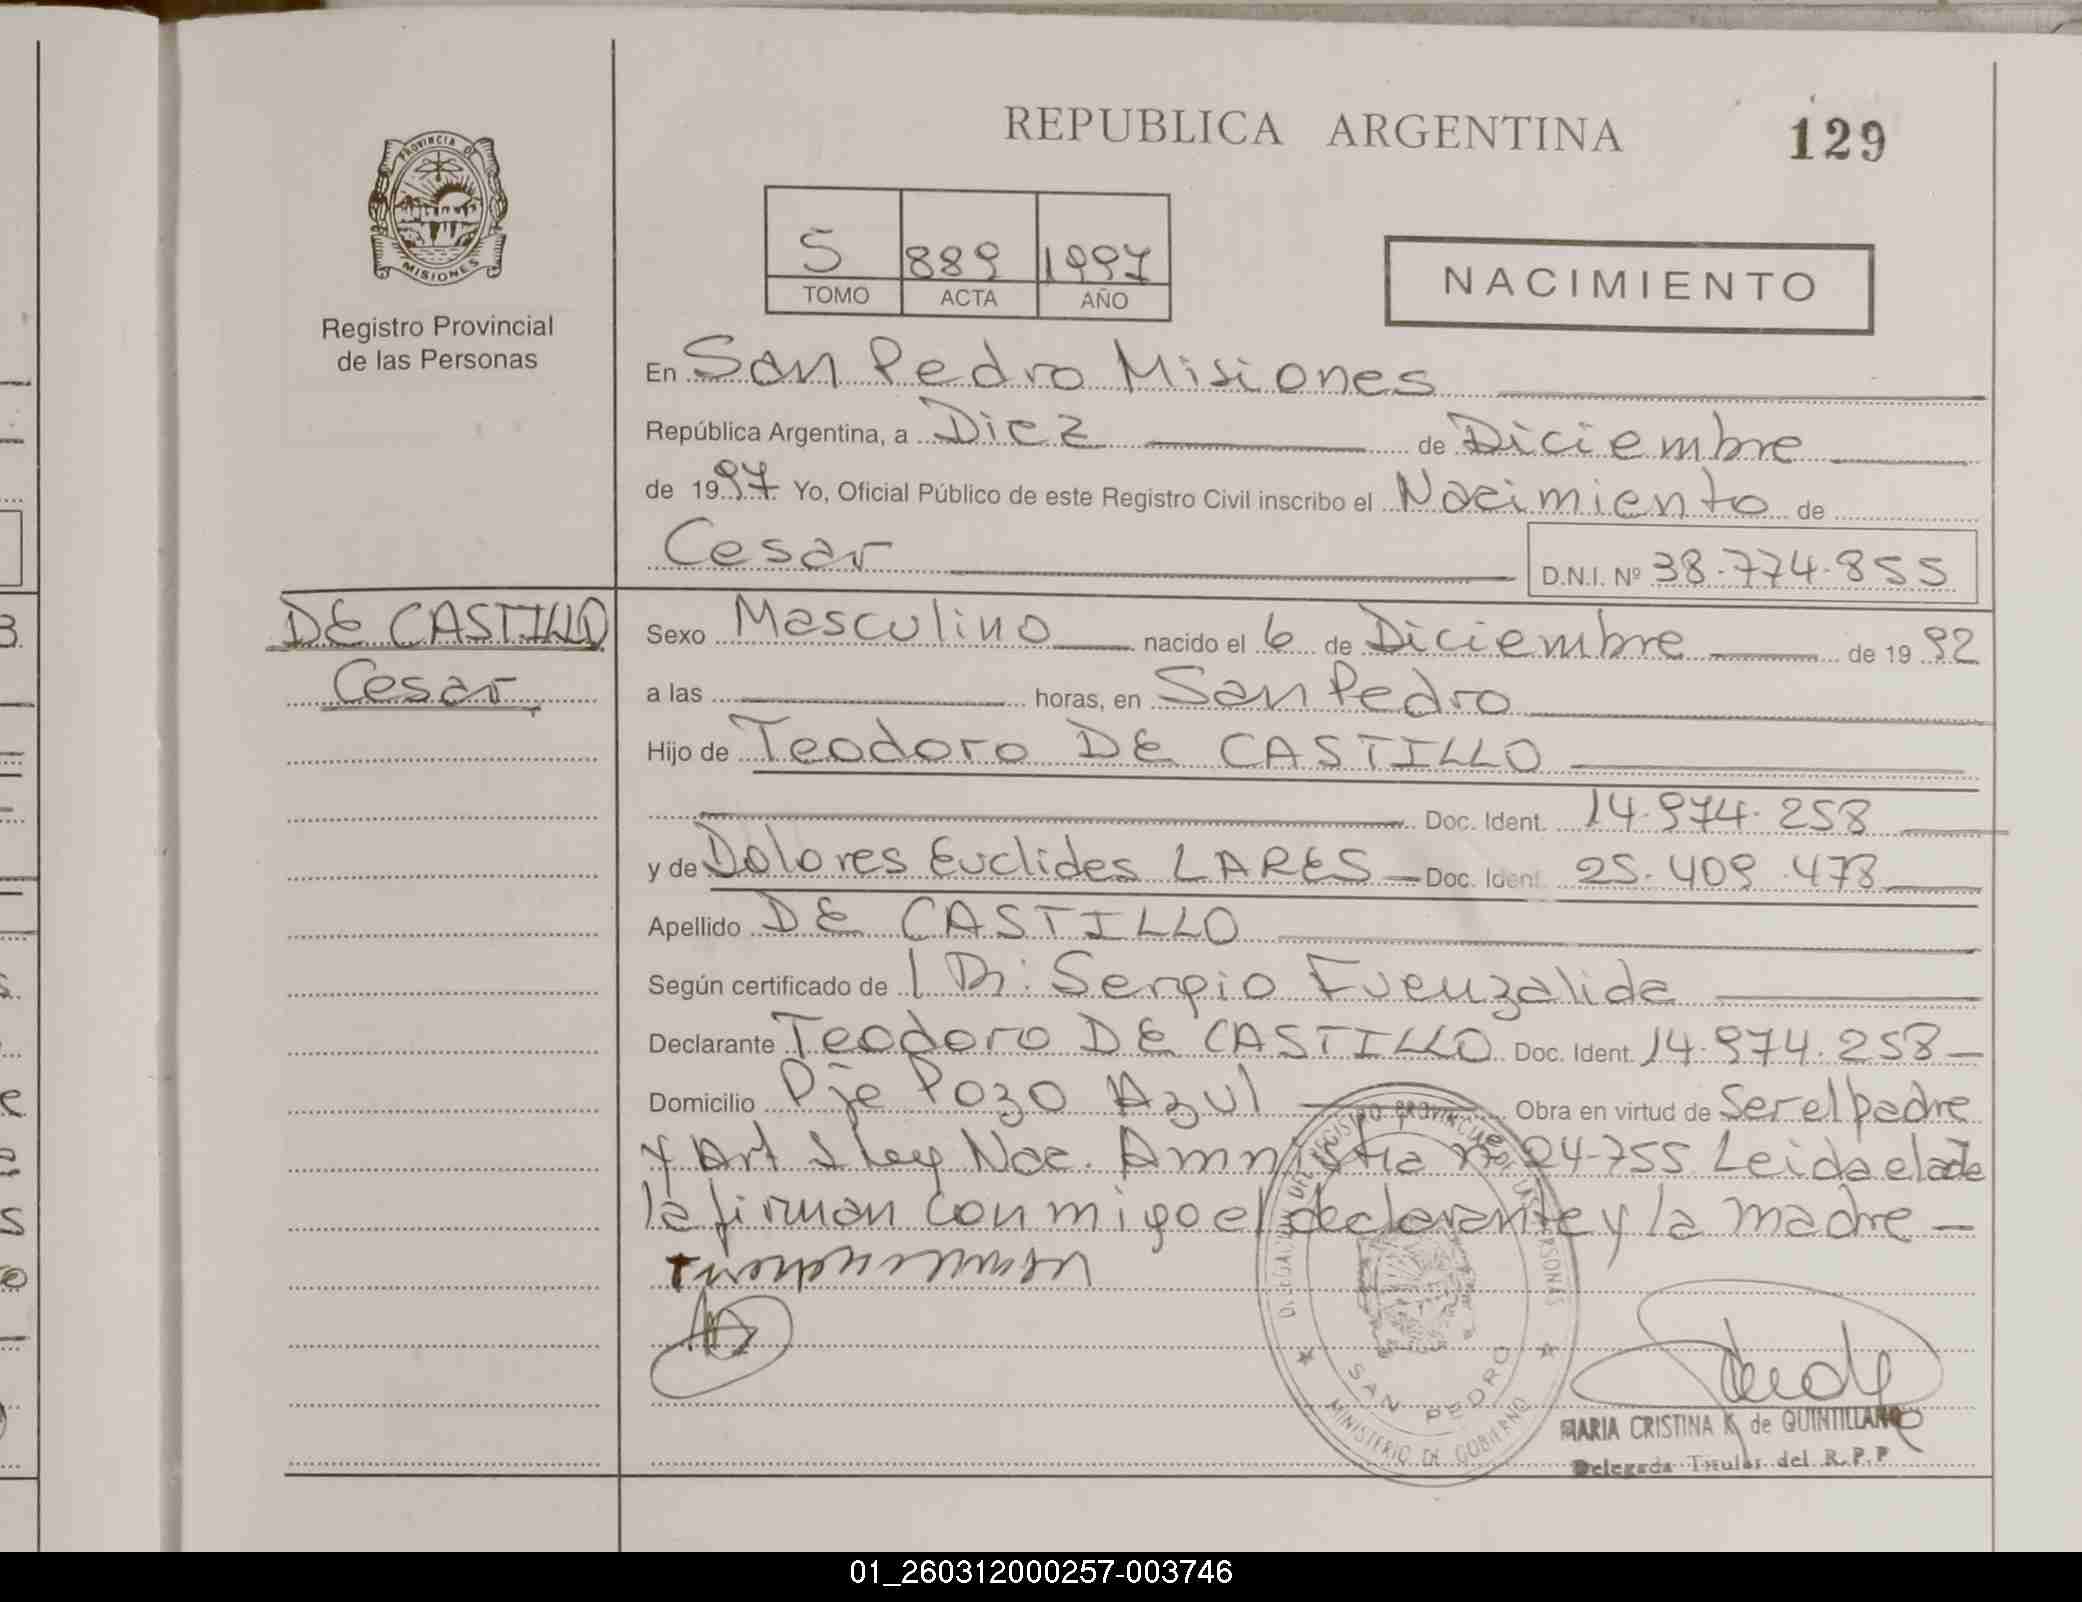 REPUBLICA ARGENTINA
129
PROVINCIA DE
MISIONES
Registro Provincial
de las Personas
5 889 1997
TOMO ACTA AÑO
NACIMIENTO
En San Pedro Misiones
República Argentina, a Diez de Diciembre
de 1997 Yo, Oficial Público de este Registro Civil inscribo el Nacimiento de
Cesar
D.N.I. Nº 38.774.855
DE CASTILLO
Cesar
Sexo Masculino nacido el 6 de Diciembre de 1992
a las horas, en San Pedro
Hijo de Teodoro DE CASTILLO
Doc. Ident. 14.974.258
y de Dolores Euclides LARES Doc. Ident. 25.409.478
Apellido DE CASTILLO
Según certificado de l Dr: Sergio Fuenzalida
Declarante Teodoro DE CASTILLO Doc. Ident. 14.974.258
Domicilio Pje Pozo Azul Obra en virtud de Ser el padre
y Art 1 ley Nac. Amnistia nº 24.755 Leida el acta
la firman conmigo el declarante y la madre
SAN PEDRO
MINISTERIO DE GOBIERNO
MARIA CRISTINA K. de QUINTILLANO
Delegada Titular del R.P.P
01_260312000257-003746